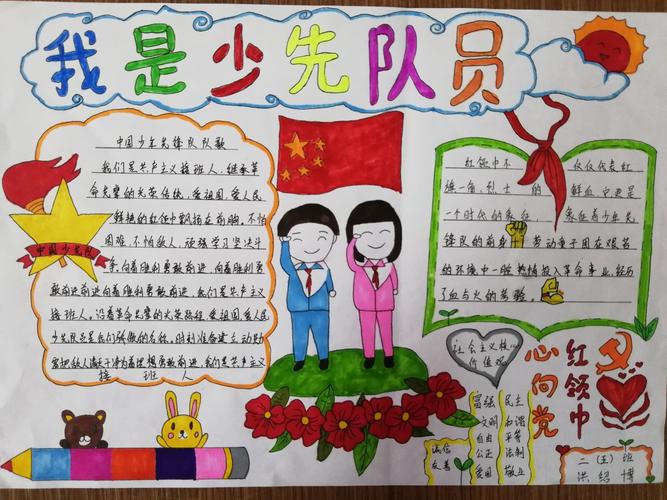 我是少先队员
中国少年先锋队队歌
我们是共产主义接班人，继承革
命先辈的光荣传统，爱祖国，爱人民
鲜艳的红领巾飘扬在前胸。不怕
困难，不怕敌人，顽强学习坚决斗
争，向着胜利勇敢前进，向着胜利勇
敢前进前进向着胜利勇敢前进，我们是共产主义
接班人。沿着革命先辈的光荣路程，爱祖国，爱人民
少先队员是我们骄傲的名称。时刻准备建立功勋
要把敌人消灭干净为着理想勇敢前进，我们是共产主义
接班人
中国少先队
红领巾不仅仅代表红
旗一角，烈士的鲜血，它更是
一个时代的象征，象征着少年先
锋队的前身劳动童子团在艰苦
的环境中一腔热情投入革命事业，经历
了血与火的考验。
社会主义核心
价值观
富强 民主
文明 和谐
自由 平等
公正 法制
爱国 敬业
诚信
友善
红领巾
心向党
二（五）班
洪绍博